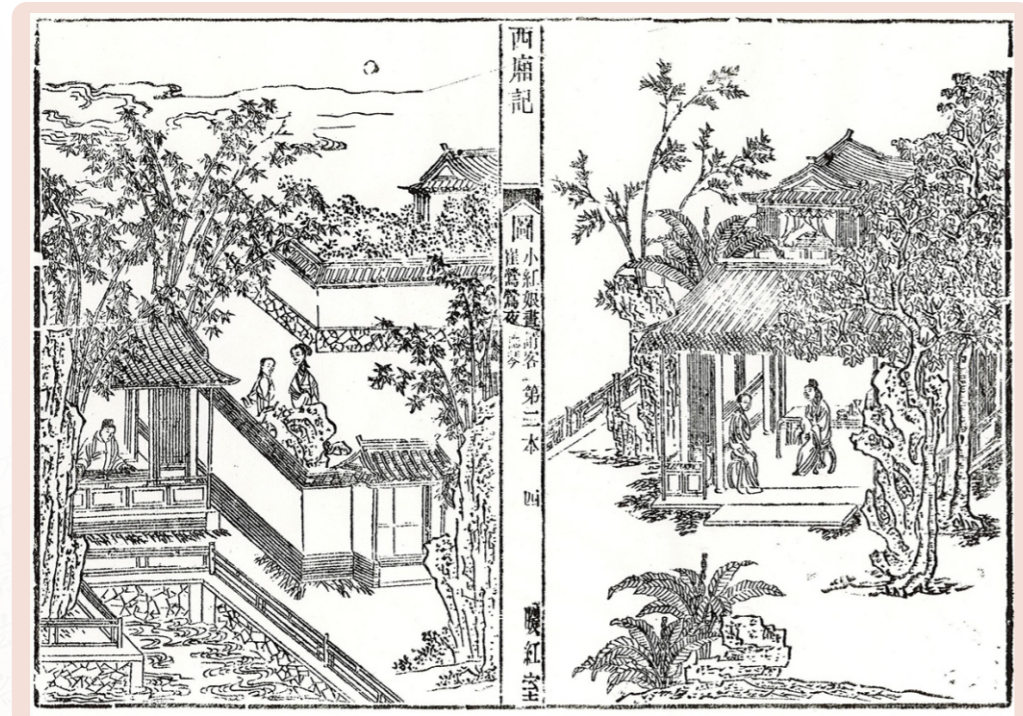 西廂記
圖
小紅娘晝請客
崔鶯鶯夜聽琴
第二本
四
暖紅室